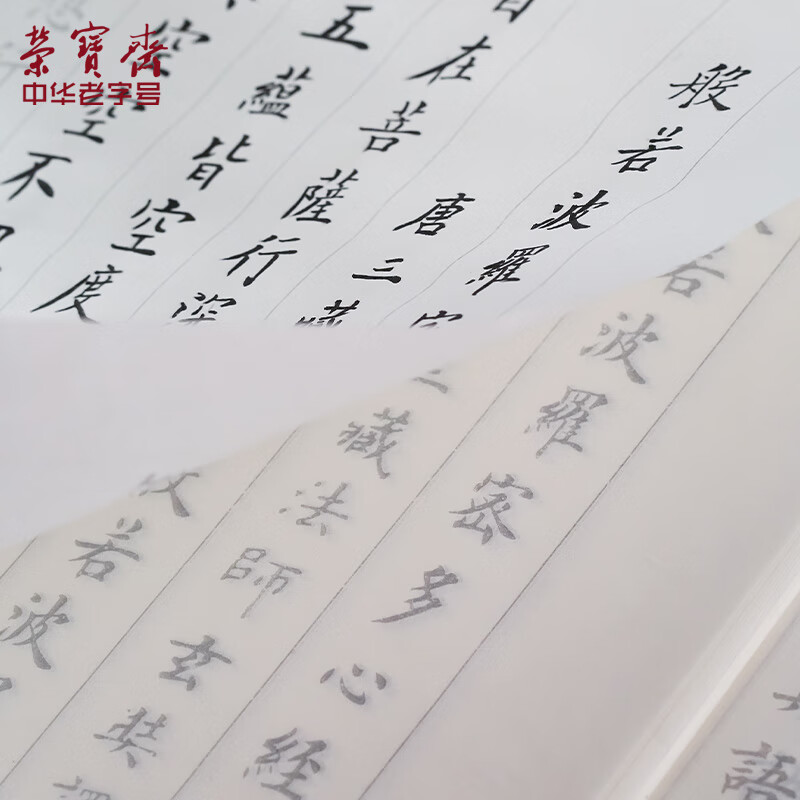 榮寶齋
中华老字号
般若波羅
唐三藏
自在菩薩行深
五蘊皆空度
空不
若波羅密多心經
三藏法師玄奘譯
般若波
語